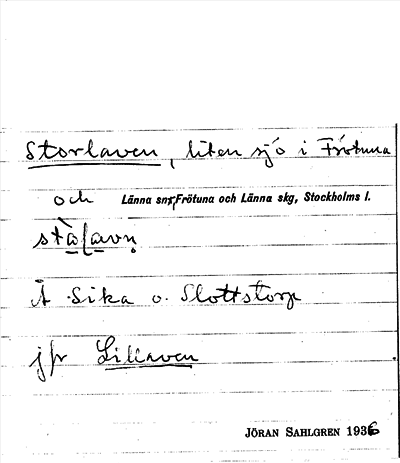 Storlaven, liten sjö i Frötuna
och Länna snr, Frötuna och Länna skg, Stockholms l.
stàlavn
Å Sika o. Slottstorp
jfr Lillaven
JÖRAN SAHLGREN 1936